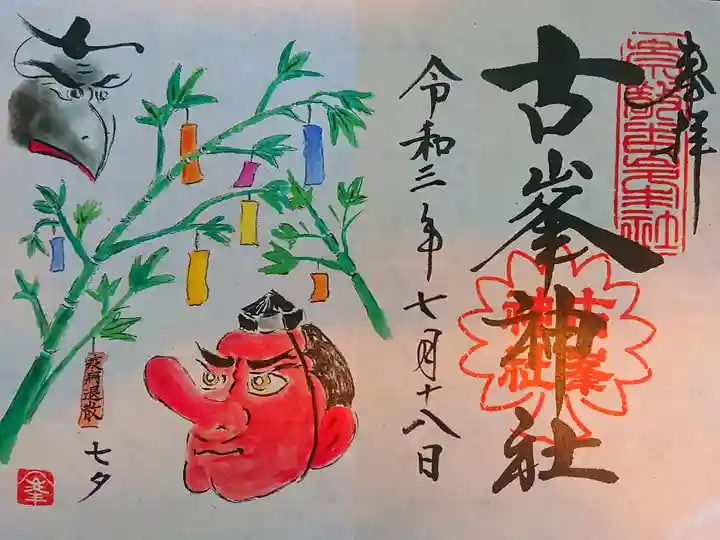 奉拝
古峯神社
令和三年七月十八日
疫病退散
七夕
古峯
神社